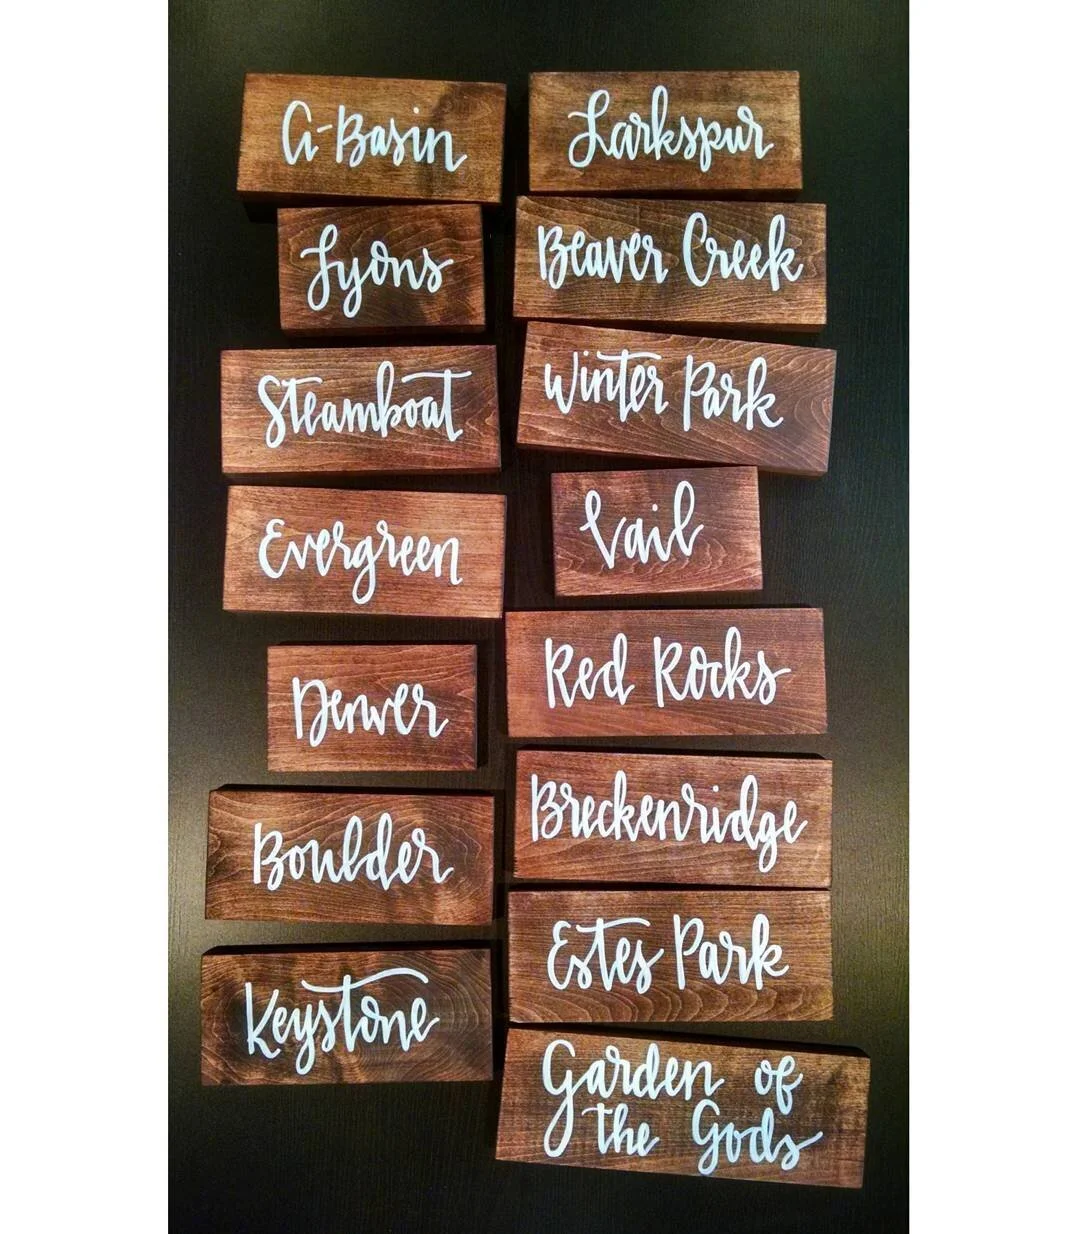 A-Basin
Larkspur
Lyons
Beaver Creek
Steamboat
Winter Park
Evergreen
Vail
Denver
Red Rocks
Boulder
Breckenridge
Keystone
Estes Park
Garden of
the Gods